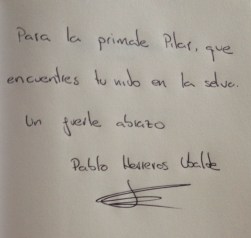 Para la primate Pilar, que
encuentres tu nido en la selva.
Un fuerte abrazo
Pablo Herreros Ubalde